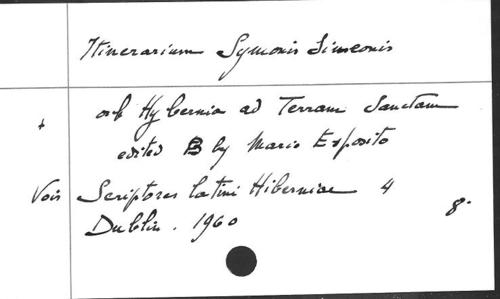 Itinerarium Symonis Simeonis
+ ab Hybernia ad Terram Sanctam
edited by Mario Esposito
Vois Scriptores latini Hiberniae 4
Dublin. 1960 8°